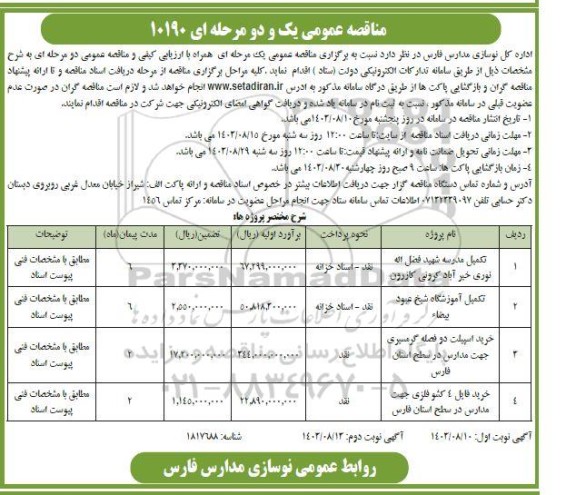 مناقصه عمومی یک و دو مرحله ای ۱۰۱۹۰
اداره کل نوسازی مدارس فارس در نظر دارد نسبت به برگزاری مناقصه عمومی یک مرحله ای همراه با ارزیابی کیفی و مناقصه عمومی دو مرحله ای به شرح
مشخصات ذیل از طریق سامانه تدارکات الکترونیکی دولت (ستاد) اقدام نماید .کلیه مراحل برگزاری مناقصه از مرحله دریافت اسناد مناقصه و تا ارائه پیشنهاد
مناقصه گران و بازگشایی پاکت ها از طریق درگاه سامانه مذکور به ادرس www.setadiran.ir انجام خواهد شد و لازم است مناقصه گران در صورت عدم
عضویت قبلی در سامانه مذکور ، نسبت به ثبت نام در سامانه یاد شده و دریافت گواهی امضای الکترونیکی جهت شرکت در مناقصه اقدام نمایند.
۱- تاریخ انتشار مناقصه در سامانه در روز پنجشنبه مورخ ۱۴۰۳/۰۸/۱۰می باشد.
۲- مهلت زمانی دریافت اسناد مناقصه از سایت:تا ساعت ۱۲:۰۰ روز سه شنبه مورخ ۱۴۰۳/۰۸/۱۵ می باشد.
۳- مهلت زمانی تحویل ضمانت نامه و ارائه پیشنهاد قیمت:تا ساعت ۱۲:۰۰ روز سه شنبه ۱۴۰۳/۰۸/۲۹ می باشد.
۴- زمان بازگشایی پاکت ها: ساعت ۹ صبح روز چهارشنبه۱۴۰۳/۰۸/۳۰ می باشد.
آدرس و شماره تماس دستگاه مناقصه گزار جهت دریافت اطلاعات بیشتر در خصوص اسناد مناقصه و ارائه پاکت الف: شیراز خیابان معدل غربی روبروی دبستان
دکتر حسابی تلفن ۰۷۱۳۲۳۳۹۰۹۷ اطلاعات تماس سامانه ستاد جهت انجام مراحل عضویت در سامانه: مرکز تماس ۱۴۵۶
شرح مختصر پروژه ها:
ردیف نام پروژه نحوه پرداخت برآورد اولیه (ریال) تضمین(ریال) مدت پیمان(ماه) توضیحات
۱ تکمیل مدرسه شهید فضل اله نوری خیر آباد کرونی کازرون نقد - اسناد خزانه ۶۷,۲۹۹,۰۰۰,۰۰۰ ۳,۳۷۰,۰۰۰,۰۰۰ ۶ مطابق با مشخصات فنی پیوست اسناد
۲ تکمیل آموزشگاه شیخ عبود بیضاء نقد - اسناد خزانه ۵۰,۸۱۸,۳۰۰,۰۰۰ ۲,۵۵۰,۰۰۰,۰۰۰ ۶ مطابق با مشخصات فنی پیوست اسناد
۳ خرید اسپیلت دو فصله گرمسیری جهت مدارس در سطح استان فارس نقد ۳۴۴,۰۰۰,۰۰۰,۰۰۰ ۱۷,۲۰۰,۰۰۰,۰۰۰ ۲ مطابق با مشخصات فنی پیوست اسناد
۴ خرید فایل ۴ کشو فلزی جهت مدارس در سطح استان فارس نقد ۲۲,۸۹۰,۰۰۰,۰۰۰ ۱,۱۴۵,۰۰۰,۰۰۰ ۲ مطابق با مشخصات فنی پیوست اسناد
ParsNamadData
۰۲۱-۸۸۳۴۹۶۷۰-۵
آگهی نوبت اول: ۱۴۰۳/۰۸/۱۰ آگهی نوبت دوم: ۱۴۰۳/۰۸/۱۳ شناسه: ۱۸۱۷۶۸۸
روابط عمومی نوسازی مدارس فارس